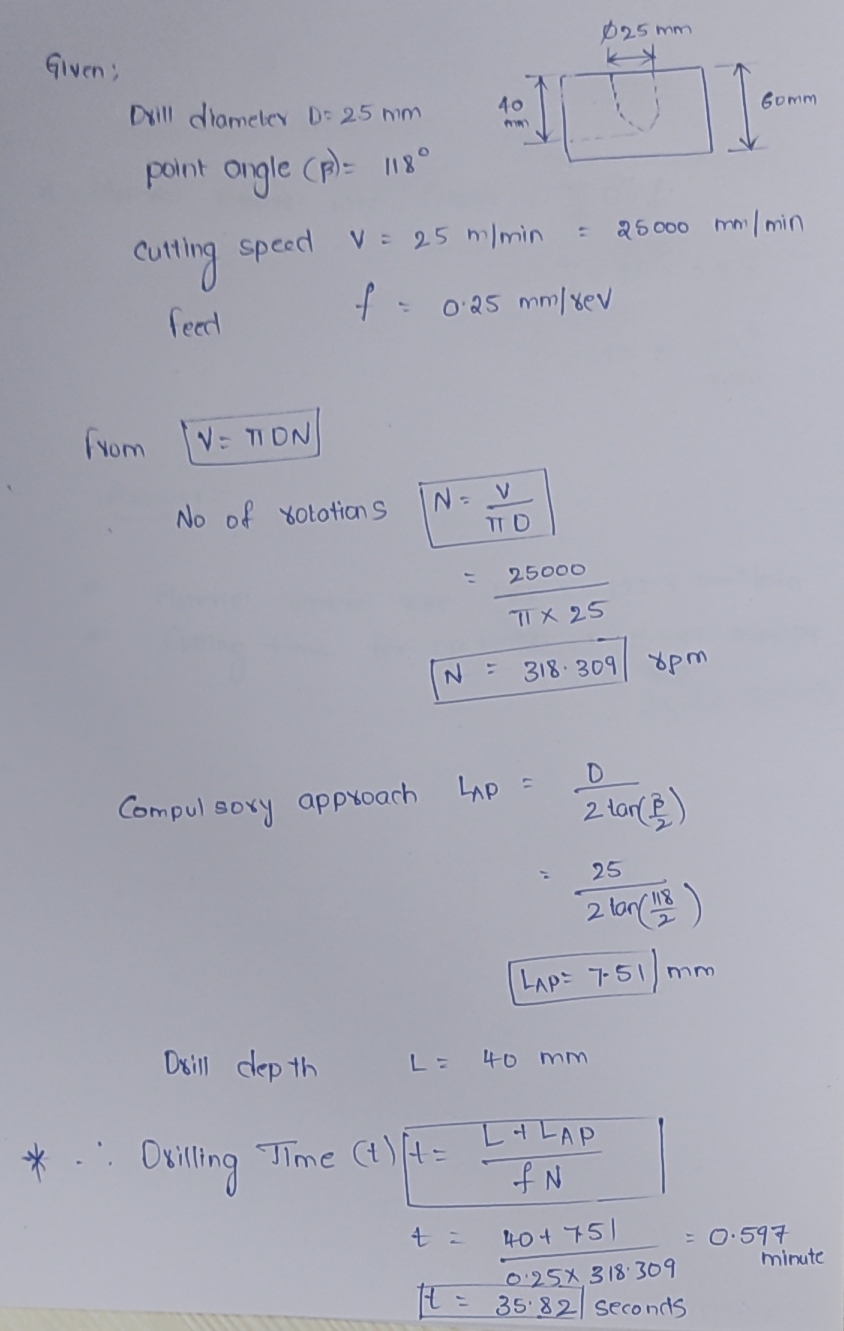 Given:
Ø25 mm
40 mm
60mm
Drill diameter D= 25 mm
point angle (β)= 118°
cutting speed V = 25 m/min = 25000 mm/min
feed f = 0.25 mm/rev
from V= πDN
No of rotations N= V / πD
= 25000 / π × 25
N = 318.309 rpm
Compulsory approach LAP = D / 2 tan(β/2)
= 25 / 2 tan(118/2)
LAP= 7.51 mm
Drill depth L= 40 mm
* ∴ Drilling Time (t) t= L+LAP / fN
t = 40+751 / 0.25× 318.309 = 0.597 minute
t = 35.82 seconds